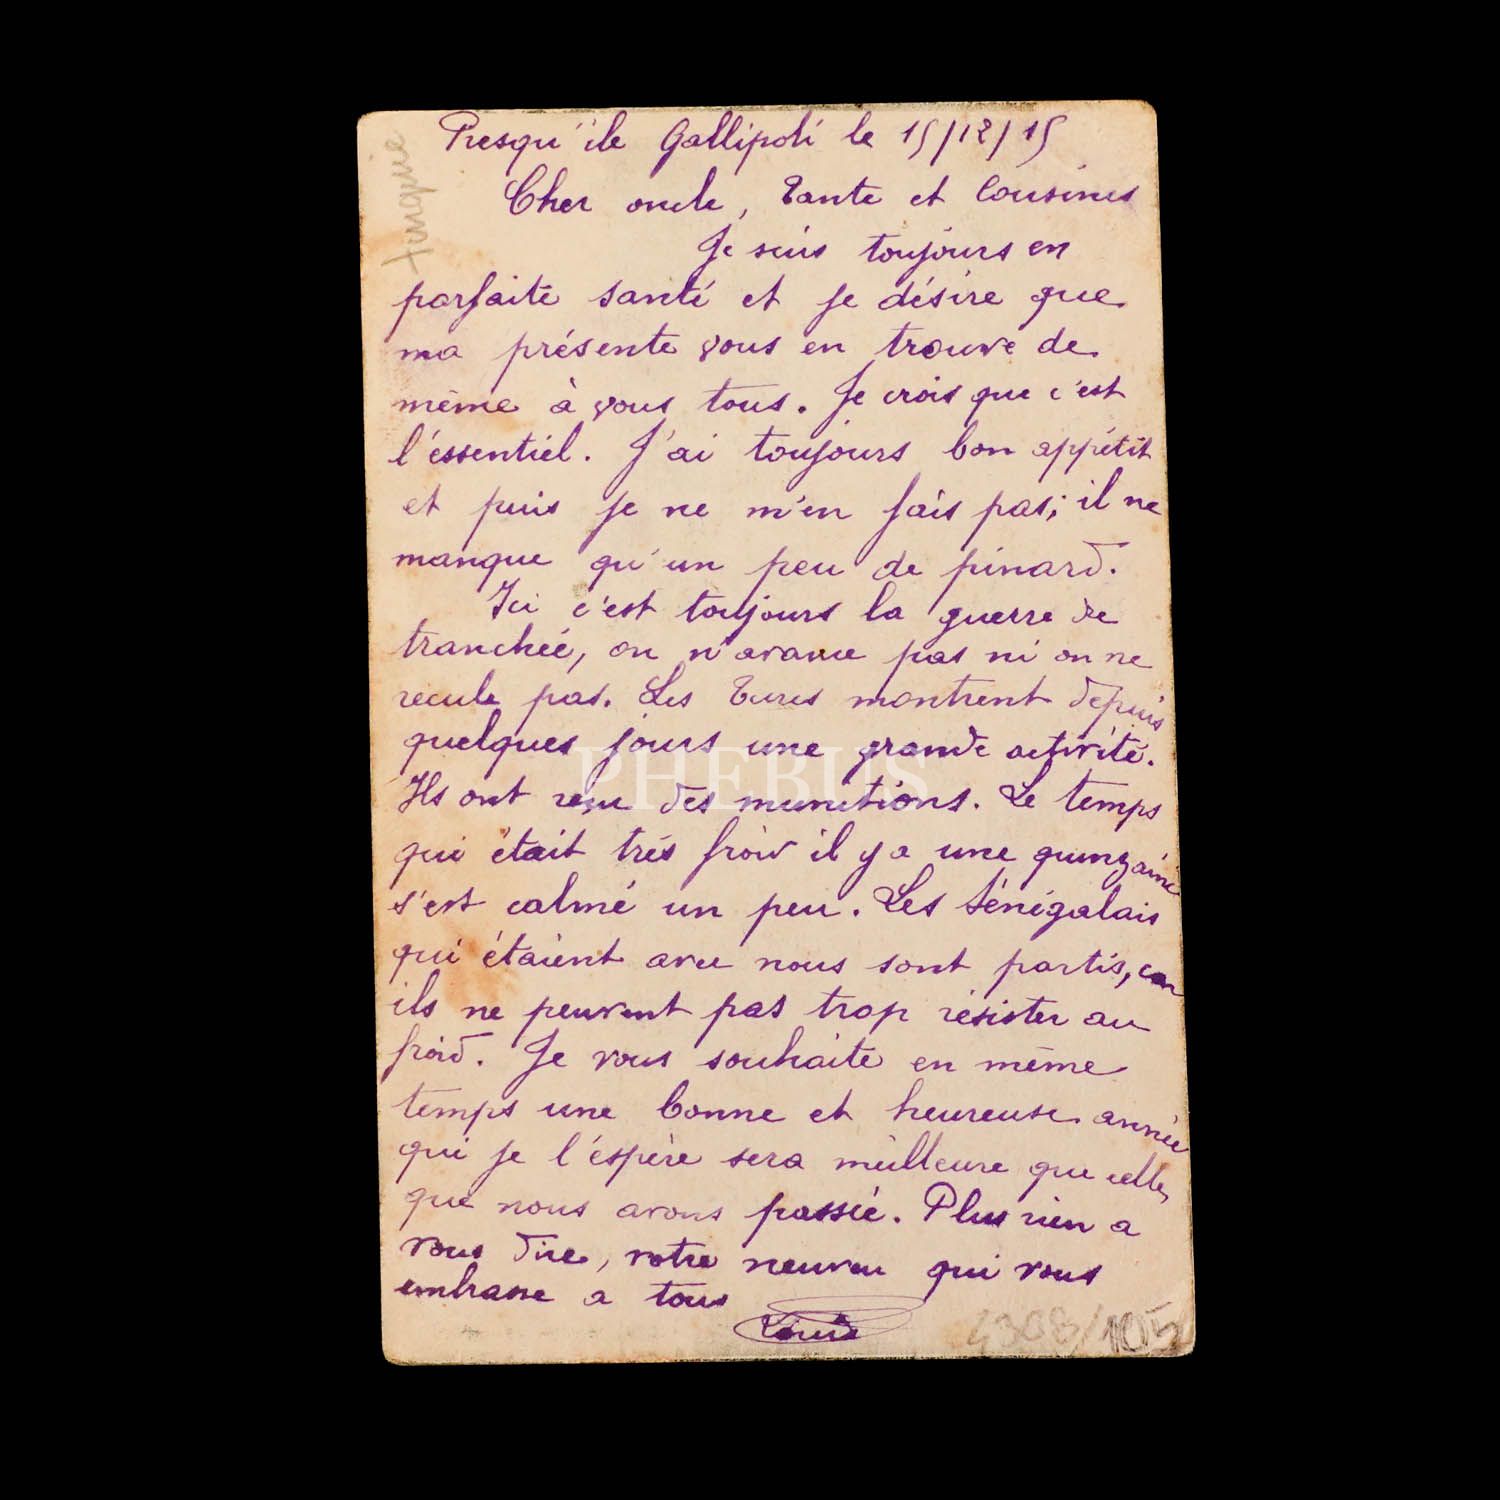 Presqu'ile Gallipoli le 15/12/15
Cher oncle, Tante et Cousines
Je suis toujours en
parfaite santé et je désire que
ma présente vous en trouve de
même à vous tous. Je crois que c'est
l'éssentiel. J'ai toujours bon appétit
et puis je ne m'en fais pas; il ne
manque qu'un peu de pinard.
Ici c'est toujours la guerre de
tranchée, on n'avance pas ni on ne
recule pas. Les Turcs montrent depuis
quelques jours une grande activité.
Ils ont reçu des munitions. Le temps
qui était très froid il y a une quinzaine
s'est calmé un peu. Les Sénégalais
qui étaient avec nous sont partis, car
ils ne peuvent pas trop résister au
froid. Je vous souhaite en même
temps une bonne et heureuse année
qui je l'éspère sera meilleure que celle,
que nous avons passée. Plus rien a
vous dire, votre neuveu qui vous
embrasse a tous
Louis
4308/105
turquie
PHEBUS